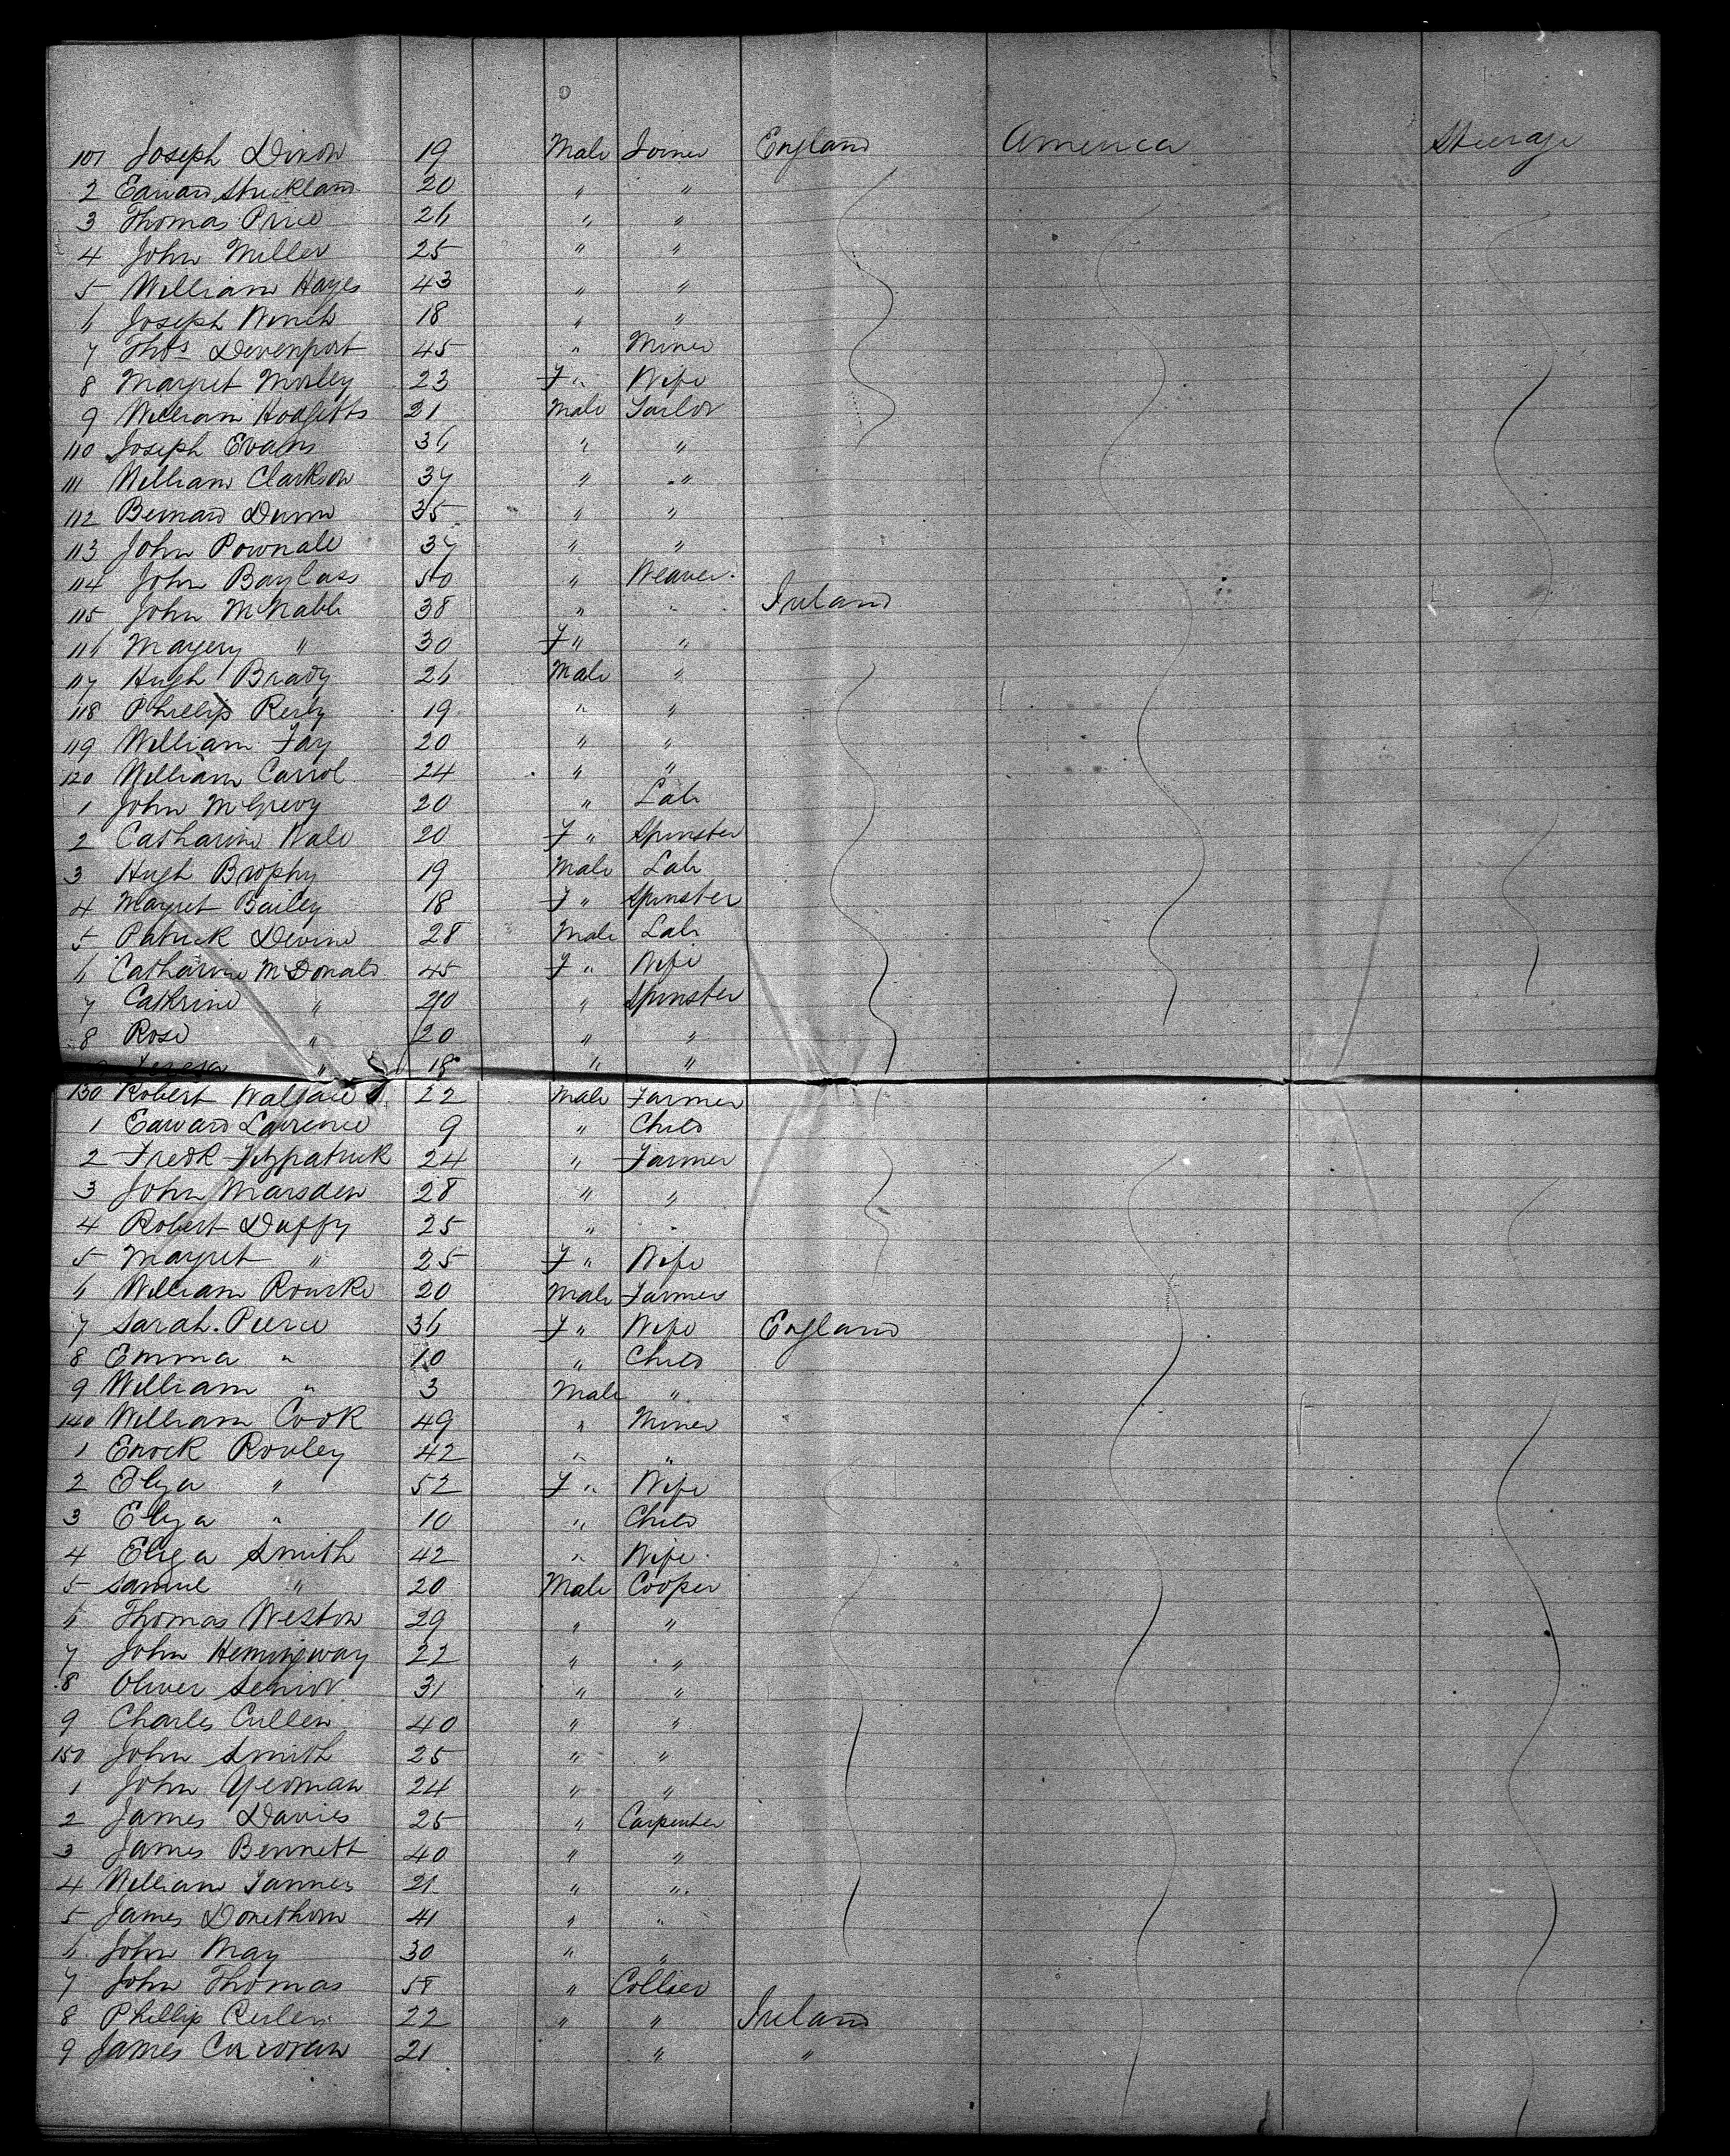 101 Joseph Dixon 19 Male Joiner England America Steerage
2 Edward Strickland 20 " "
3 Thomas Price 26 " "
4 John Miller 25 " "
5 William Hayes 43 " "
6 Joseph Winch 18 " "
7 Thos Devenport 45 " Miner
8 Margret Morley 23 F " Wife
9 William Hodgetts 21 Male Tailor
110 Joseph Evans 36 " "
111 William Clarkson 34 " "
112 Bernard Dunn 35 " "
113 John Pownall 34 " "
114 John Baylass 50 " Weaver
115 John McNabb 38 " " Ireland
116 Magery " 30 F " "
117 Hugh Brady 26 Male "
118 Phillip Reily 19 " "
119 William Fay 20 " "
120 William Carrol 24 " "
1 John McGrevy 20 " Lab
2 Catharine Wale 20 F " Spinster
3 Hugh Brophy 19 Male Lab
4 Margret Bailey 18 F " Spinster
5 Patrick Devine 28 Male Lab
6 Catharine McDonald 45 F " Wife
7 Cathrine " 20 " Spinster
8 Rose " 20 " "
Teresa " 18 " "
130 Robert Wallace 22 Male Farmer
1 Edward Lawrence 9 " Child
2 Fredk Fitzpatrick 24 " Farmer
3 John Marsden 28 " "
4 Robert Duffy 25 " "
5 Margret " 25 F " Wife
6 William Rourke 20 Male Farmer
7 Sarah Pierce 36 F " Wife England
8 Emma " 10 " Child
9 William " 3 Male "
140 William Cook 49 " Miner
1 Enock Rowley 42 " "
2 Eliza " 52 F " Wife
3 Eliza " 10 " Child
4 Eliza Smith 42 " Wife
5 Samuel " 20 Male Cooper
6 Thomas Weston 29 " "
7 John Hemingway 22 " "
8 Oliver Senior 31 " "
9 Charles Cullen 40 " "
150 John Smith 25 " "
1 John Yeoman 24 " "
2 James Davies 25 " Carpenter
3 James Bennett 40 " "
4 William Tanner 21 " "
5 James Donethorn 41 " "
6 John May 30 " "
7 John Thomas 58 " Collier
8 Phillip 22 " " Ireland
9 James Corcoran 21 " "